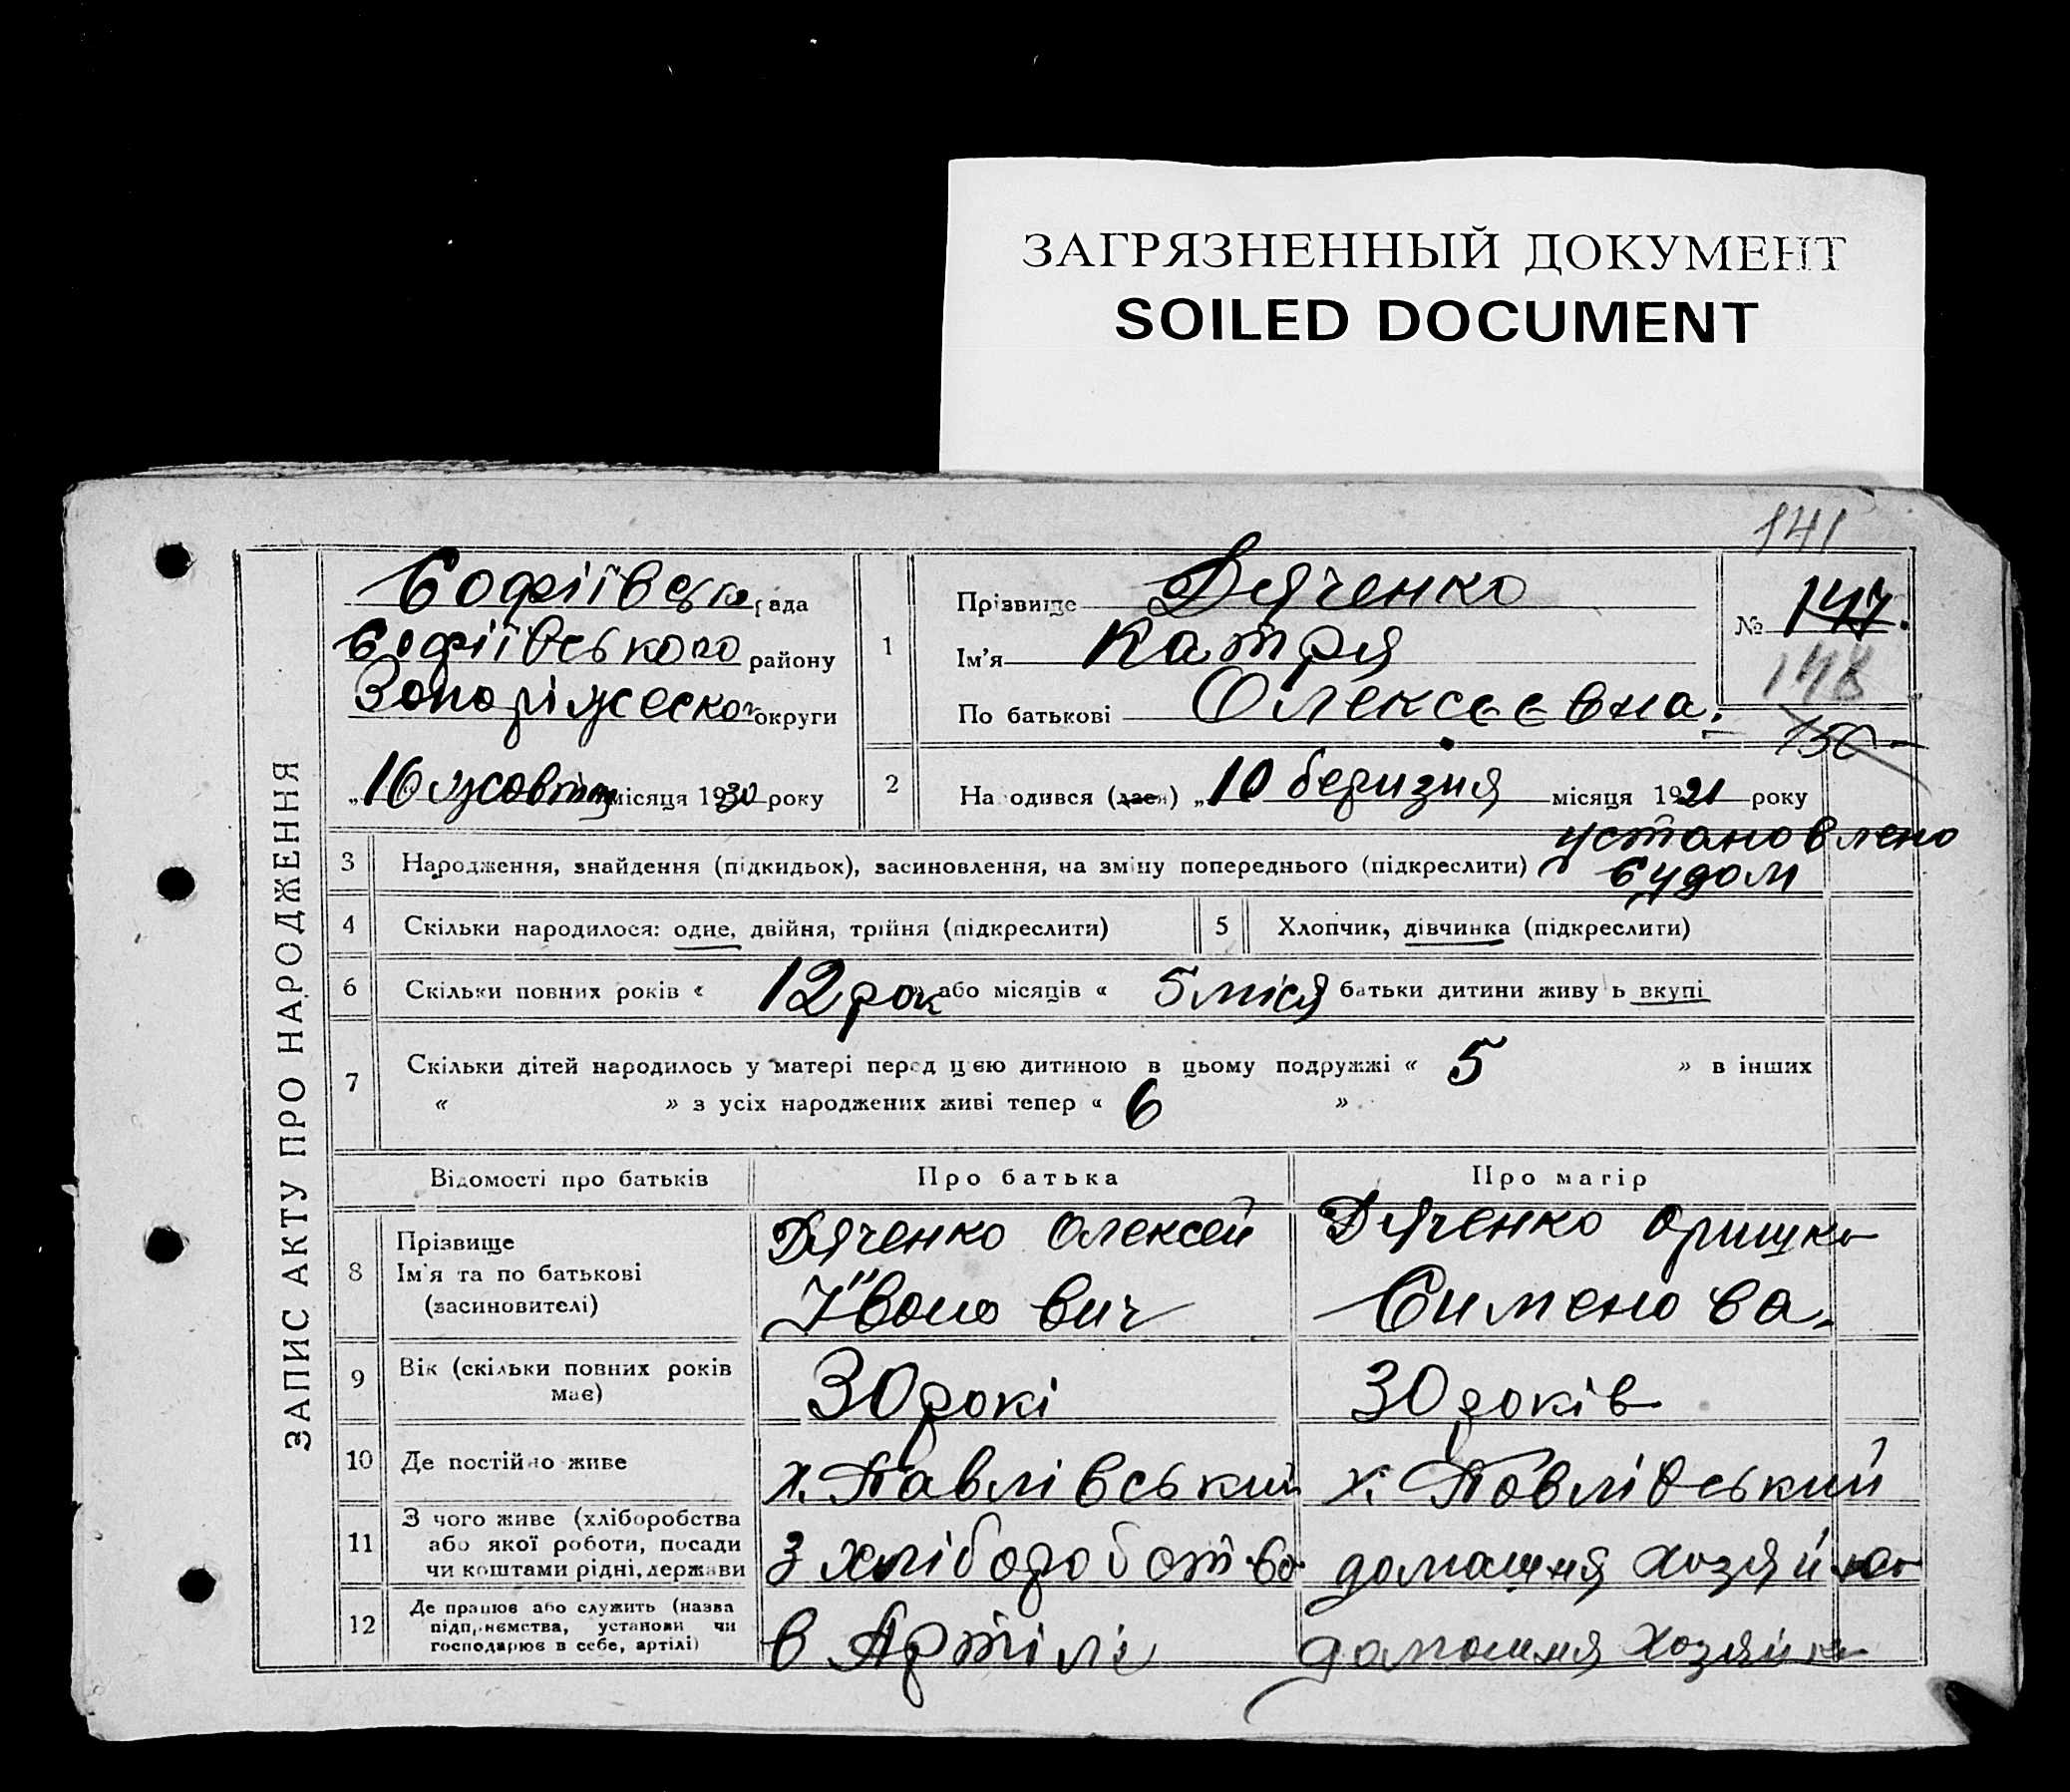 ЗАГРЯЗНЕННЫЙ ДОКУМЕНТ
SOILED DOCUMENT
141
ЗАПИС АКТУ ПРО НАРОДЖЕННЯ
Софіївська рада
Софіївського району
Запоріжеско округи
„16 жовтня місяця 1930 року
1
Прізвище Дяченко
Ім'я Катря
По батькові Олексєєвна.
№ 147.
148
150
2 Народився (лась) „10 березня місяця 1921 року
установлено
судом
3 Народження, знайдення (підкидьох), засиновлення, на зміну попереднього (підкреслити)
4 Скільки народилося: одне, двійня, трійня (підкреслити) 5 Хлопчик, дівчинка (підкреслити)
6 Скільки повних років « 12 рок » або місяців « 5 міся батьки дитини живуть вкупі
7 Скільки дітей народилось у матері перед цією дитиною в цьому подружжі « 5 » в інших
« » з усіх народжених живі тепер « 6 »
Відомості про батьків Про батька Про матір
8 Прізвище
Ім'я та по батькові
(засиновителі)
Дяченко Олексей
Іванович
Дяченко Оришка
Сименова.
9 Вік (скільки повних років
має)
30 рокі 30 років
10 Де постійно живе х. Павлівський х. Павлівський
11 З чого живе (хліборобства
або якої роботи, посади
чи коштами рідні, держави
з хліборобства домашня хозяйка
12 Де працює або служить (назва
підприємства, установи чи
господарює в себе, артілі)
в Артілі домашня хозяйка